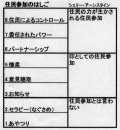 住民参加のはしご
シェリー・アーンスタイン
8.住民によるコントロール
住民の力が生かされる住民参加
7.委任されたパワー
6.パートナーシップ
5.懐柔
印としての住民参加
4.意見聴取
3.お知らせ
2.セラピー(なぐさめ)
住民参加とは言わない
1.あやつり